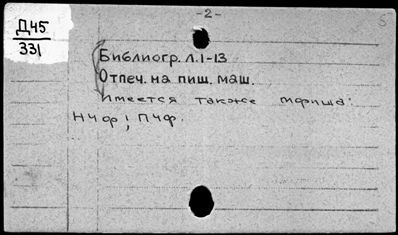 -2-
5
Д45
331
Библиогр. Л.1-13
Отпеч. на пиш. маш.
Имеется также мфиша:
НЧф; ПЧф.